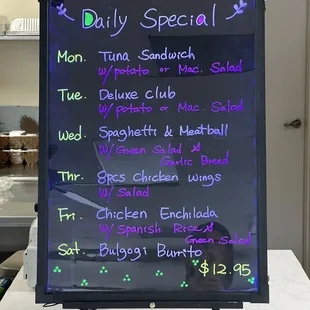 Daily Special
Mon. Tuna Sandwich
w/potato or Mac. Salad
Tue. Deluxe Club
w/potato or Mac. Salad
Wed. Spaghetti & Meatball
w/Green Salad &
Garlic Bread
Thr. 8pcs Chicken Wings
w/Salad
Fri. Chicken Enchilada
w/Spanish Rice &
Green Salad
Sat. Bulgogi Burrito
$12.95